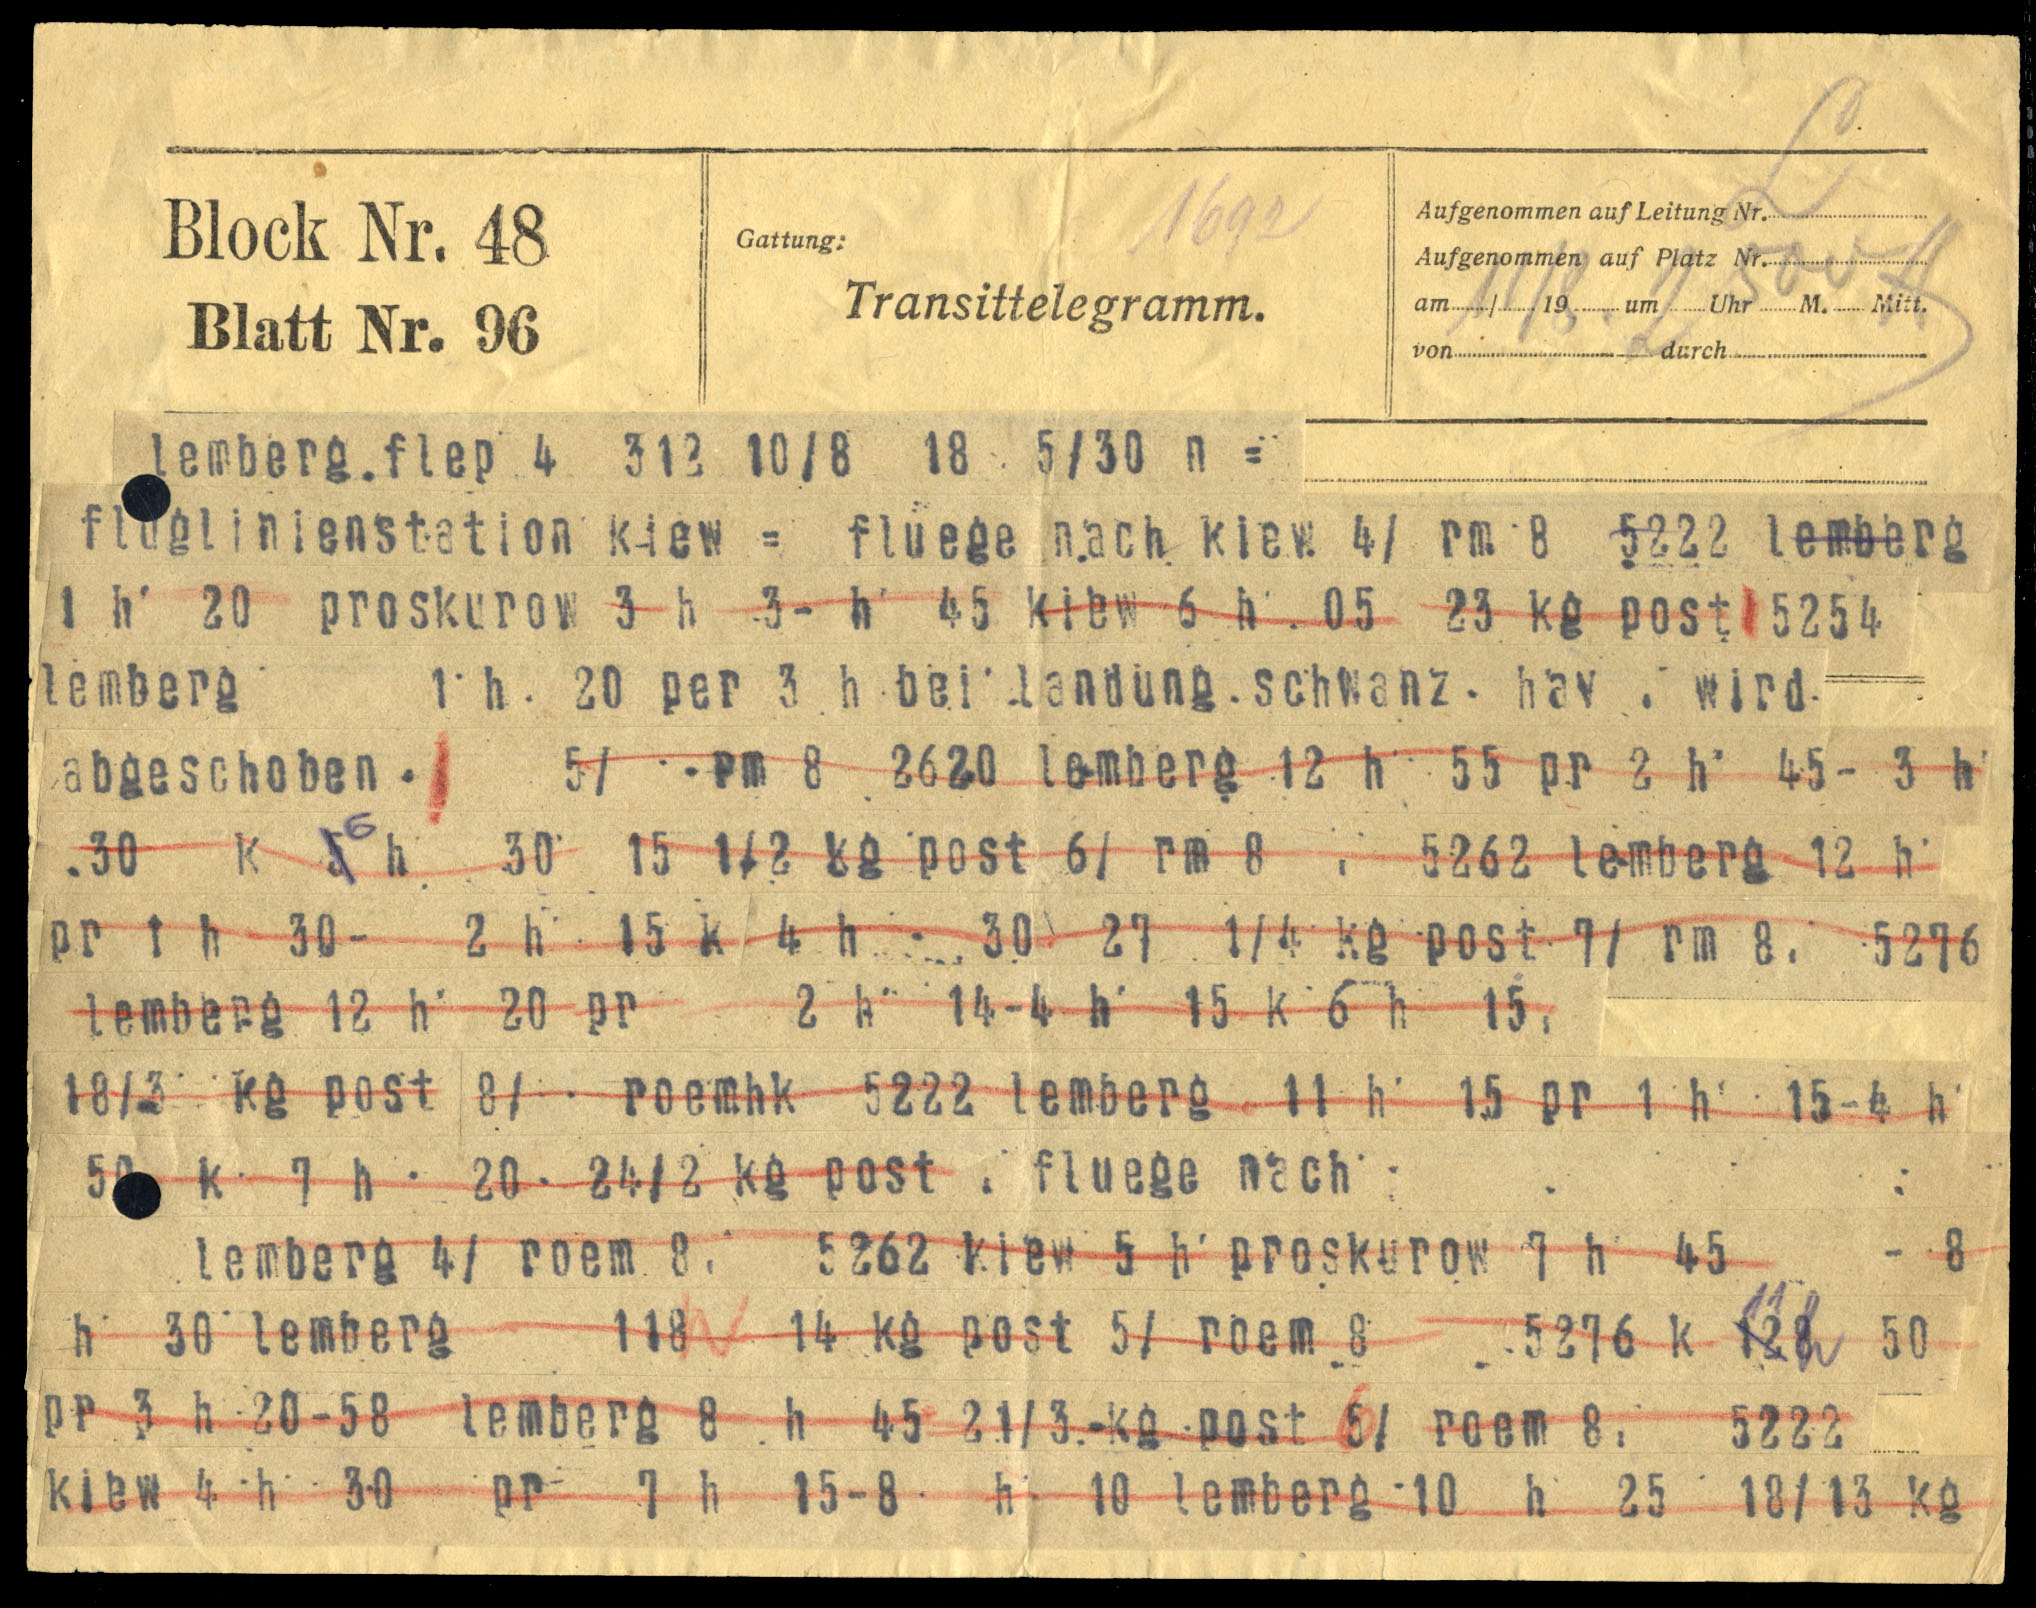 Block Nr. 48
Blatt Nr. 96
Gattung:
1692
Transittelegramm.
Aufgenommen auf Leitung Nr.
Aufgenommen auf Platz Nr.
am / 19 um Uhr M. Mitt.
von durch
11/8.
lemberg.flep 4 312 10/8 18 5/30 n =
fluglinienstation kiew = fluege nach kiew 4/ rm 8 5222 lemberg
1 h 20 proskurow 3 h 3- h 45 kiew 6 h . 05 23 kg post 5254
lemberg 1 h . 20 per 3 h bei landung.schwanz. hav . wird
abgeschoben . 5/ . rm 8 2620 lemberg 12 h 55 pr 2 h 45- 3 h
.30 k 6 h 30 15 1/2 kg post 6/ rm 8 . 5262 lemberg 12 h
pr 1 h 30- 2 h 15 k 4 h . 30 27 1/4 kg post 7/ rm 8. 5276
lemberg 12 h 20 pr 2 h 14-4 h 15 k 6 h 15.
18/3 kg post 8/ . roemhk 5222 lemberg 11 h 15 pr 1 h 15-4 h
50 k 7 h . 20. 24/2 kg post . fluege nach
lemberg 4/ roem 8. 5262 kiew 5 h proskurow 7 h 45 - 8
h 30 lemberg 118 14 kg post 5/ roem 8 5276 k 128 11h 50
pr 3 h 20-58 lemberg 8 h 45 21/3.-kg.post 5/ 6 roem 8. 5222
kiew 4 h 30 pr 7 h 15-8 h 10 lemberg 10 h 25 18/13 kg